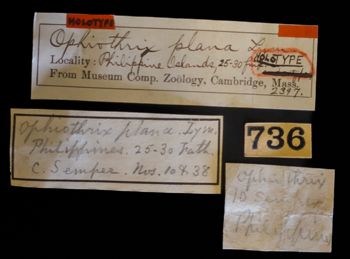 HOLOTYPE
Ophiothrix plana Lyman
HOLOTYPE
Locality: Philippine Islands, 25-30
From Museum Comp. Zoölogy, Cambridge, Mass.
2397.
Ophiothrix plana. Lym.
Philippines. 25-30 Fath.
C. Semper. Nos. 10 & 38
736
Ophiothrix
10 Semper
Philippine